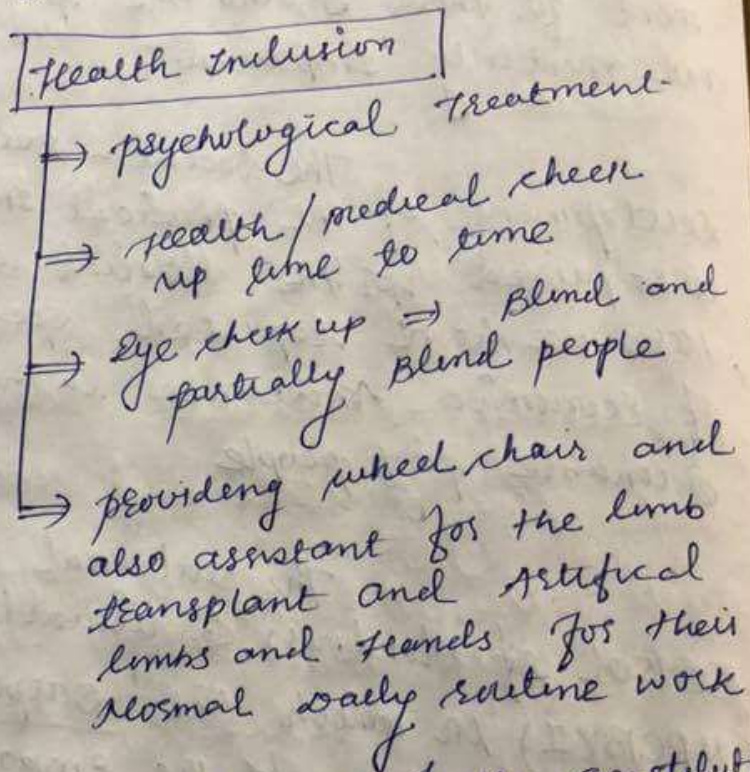 Health Inclusion
⇒ psychological Treatment
⇒ Health/medical check
up time to time
⇒ Eye check up ⇒ Blind and
partially Blind people
⇒ providing wheel chair and
also assistant for the limb
transplant and Artifical
limbs and Hands for their
Normal Daily routine work